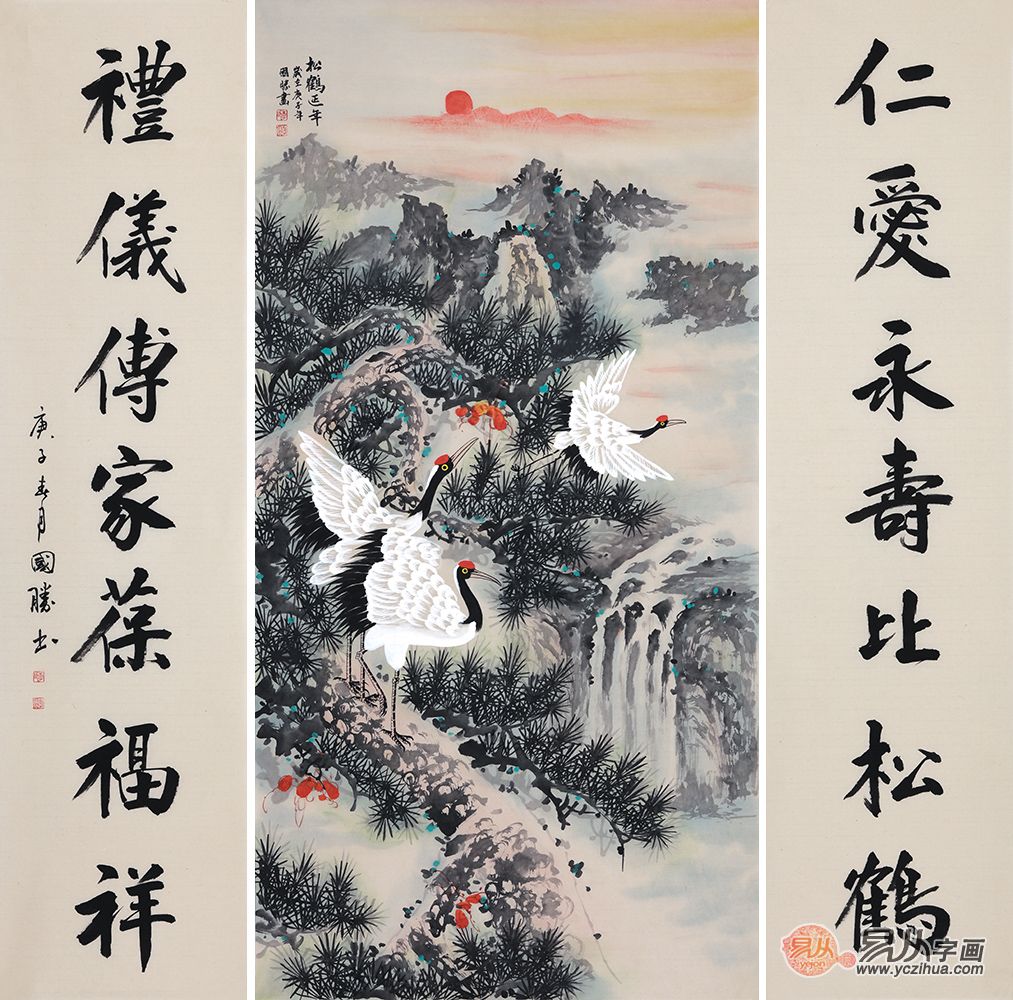 仁愛永壽比松鶴
松鶴延年
歲在庚子年
國勝畫
禮儀傳家葆福祥
庚子春月國勝书
易从
yigon
易从字画
www.yczihua.com